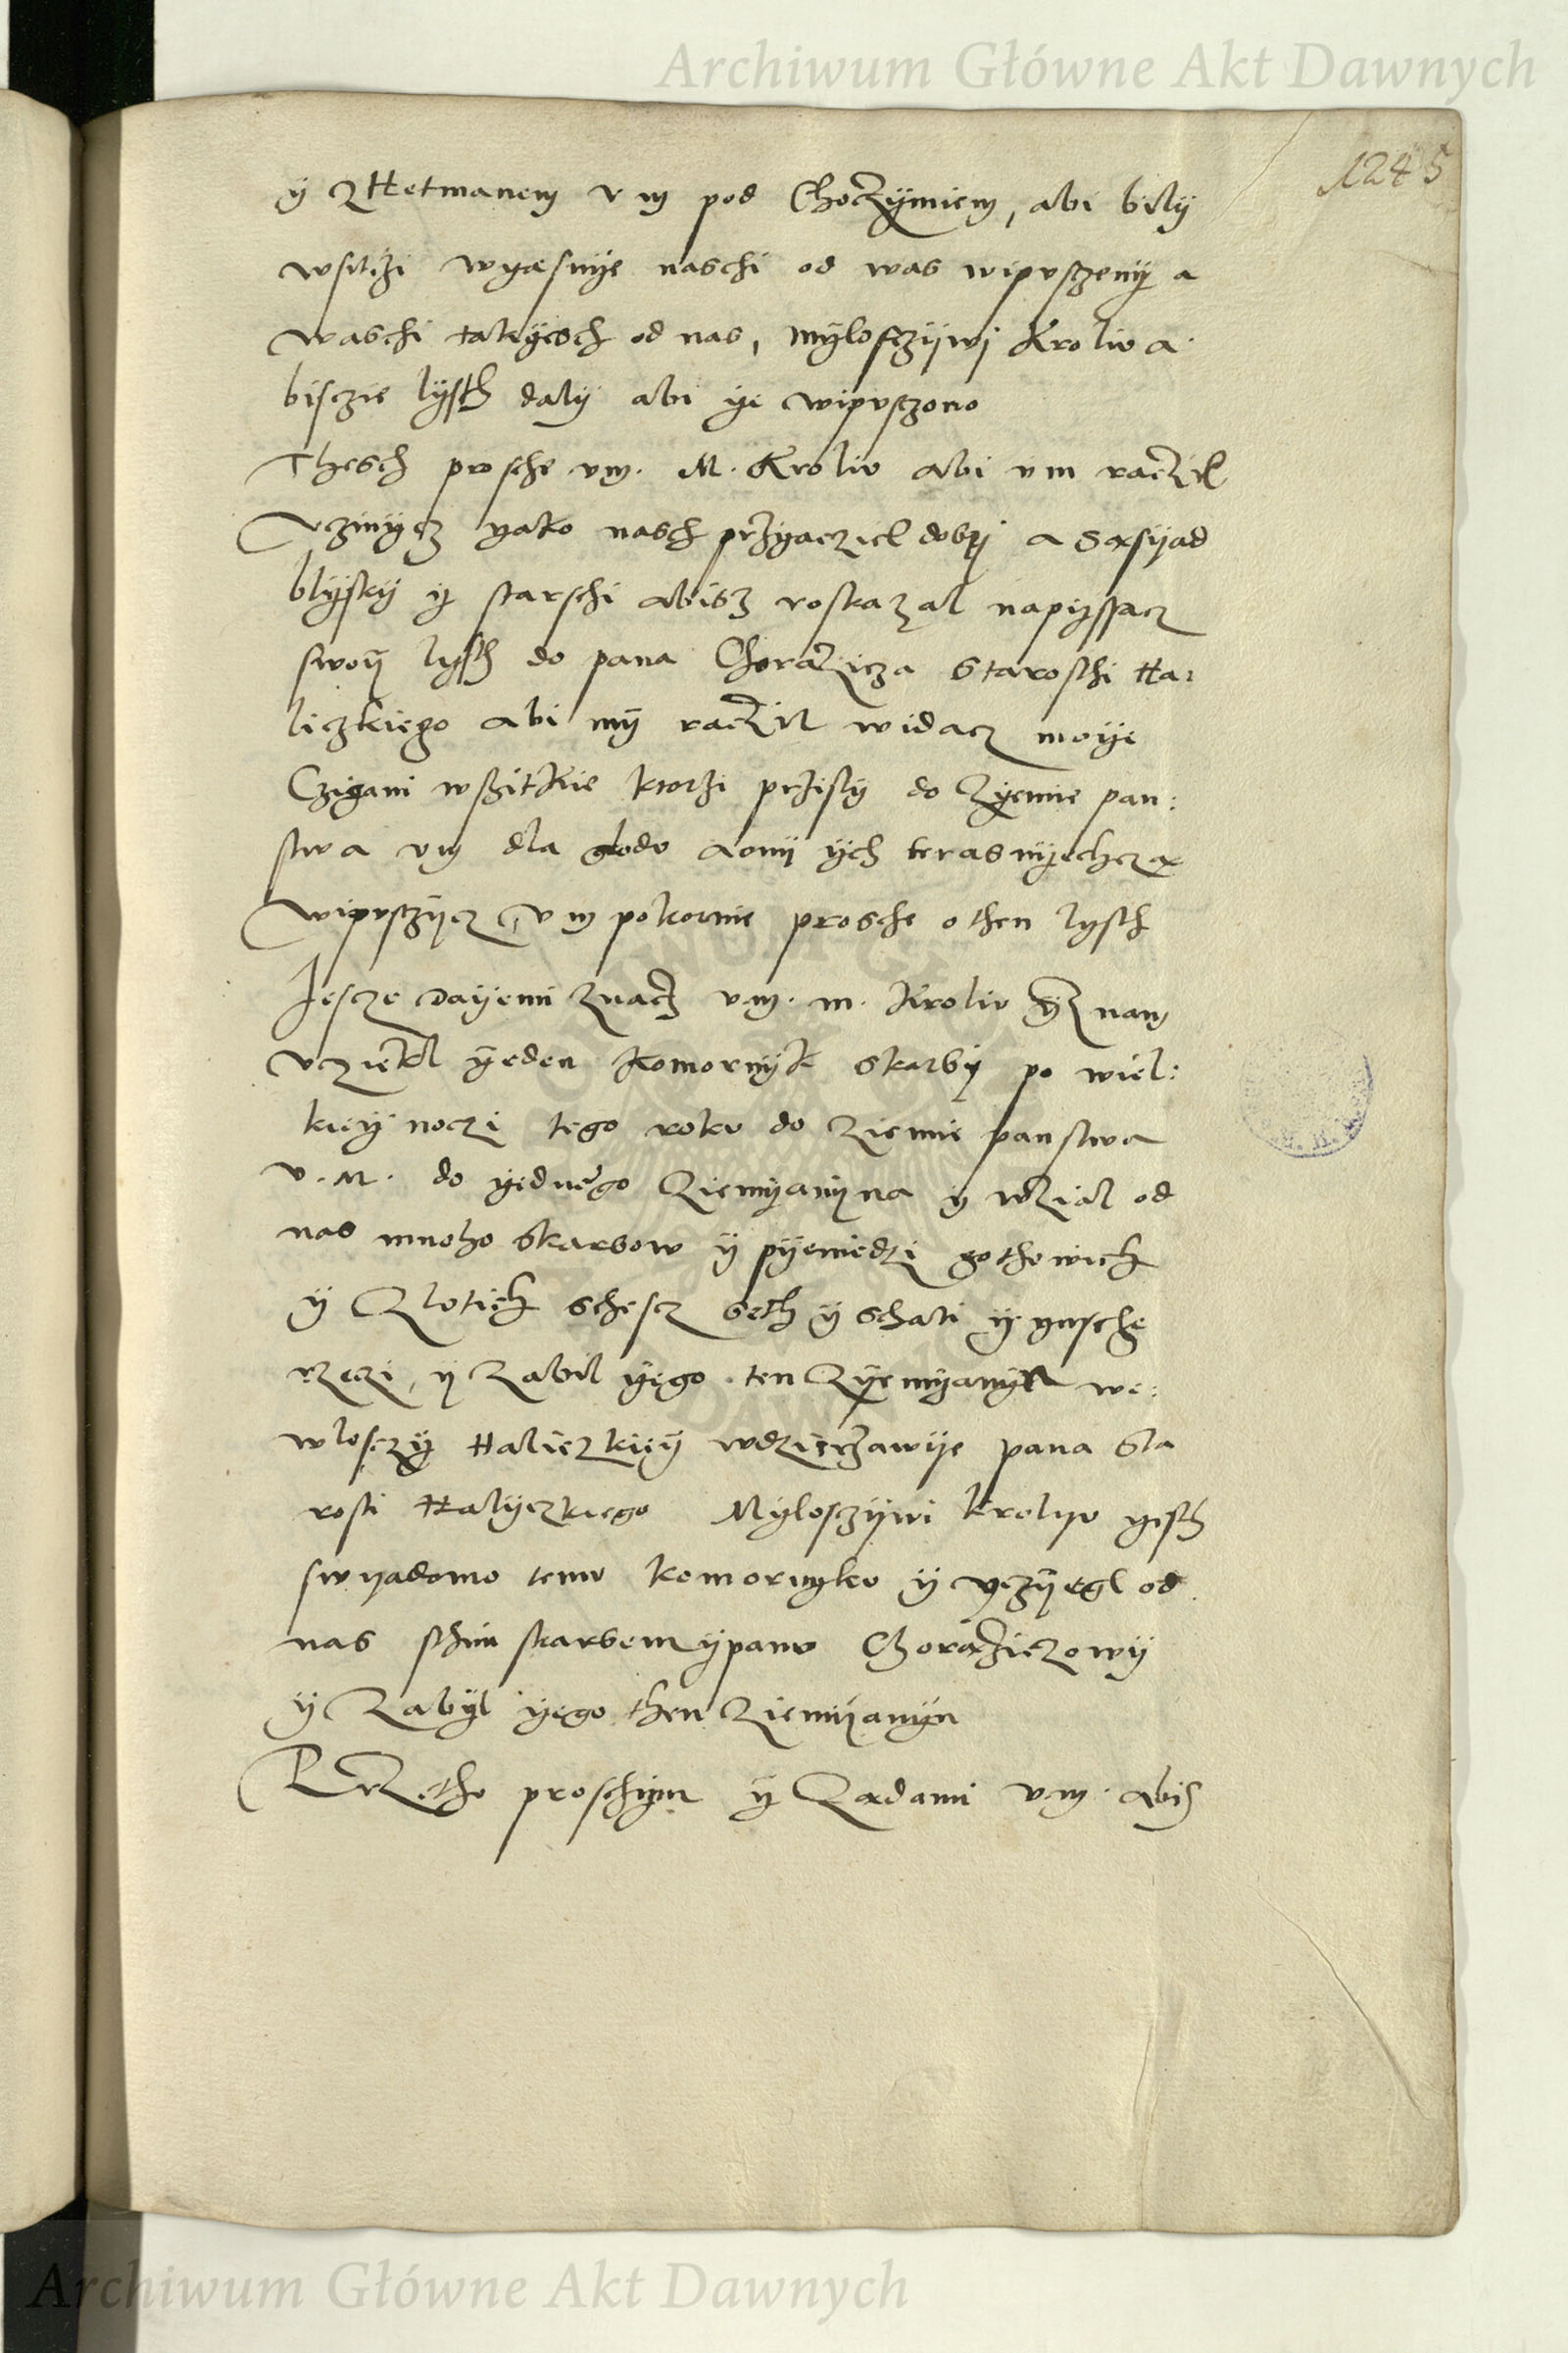 Archiwum Główne Akt Dawnych
1245
ÿ z Hetmanem v m pod Choczÿmiem, abi bilÿ
wsitczi wyæsnÿe naschi od was wipusczenÿ a
waschi takÿesch od nas, mÿlosczÿwÿ Kroliv a
bisczie lÿsth dalÿ abi ÿe wipusczono
Thesch prosche vm. M. Kroliv abi v m raczil
Vczinÿcz yako nasch przÿaciel dobrÿ a sąsÿad
blÿskÿ ÿ starschi abisz roskazal napÿssacz
swoÿ lÿsth do pana Chorązicza Starosthi Ha:
liczkiego abi mÿ raczil widacz moÿe
Czigani wszitkie ktorzi przisly do Zÿemie pan:
stwa vm dla glodv a onÿ ÿch teras nÿechczą
wipusczÿcz, v m pokornie prosche o then lysth
Jescze dayemi znacz v m. m. Kroliv ÿz nam
vziekl ÿeden komornÿk skarbÿ po wiel:
kieÿ noczi tego rokv do ziemie panstwa
v. M. do ÿednego Ziemÿanÿna ÿ wzial od
nas mnoho skarbow ÿ pÿeniedzi gothowich
ÿ Zlotich schescz seth ÿ schati ÿ ynsche
rzeczi, ÿ zabil ÿego ten Zÿemÿanÿn we:
wlosczÿ Haliczkieÿ wdzierzawÿe pana Sta
rosti Halÿczkiego Mÿlosczÿwi krolÿv ÿesth
swyadomo temv komornÿkv ÿ vczÿegl od
nas sthim skarbem ÿ panv Chorąziczowÿ
ÿ Zabÿl ÿego then Ziemÿanÿn
Przetho proschim ÿ Ządami v m. abis
Archiwum Główne Akt Dawnych